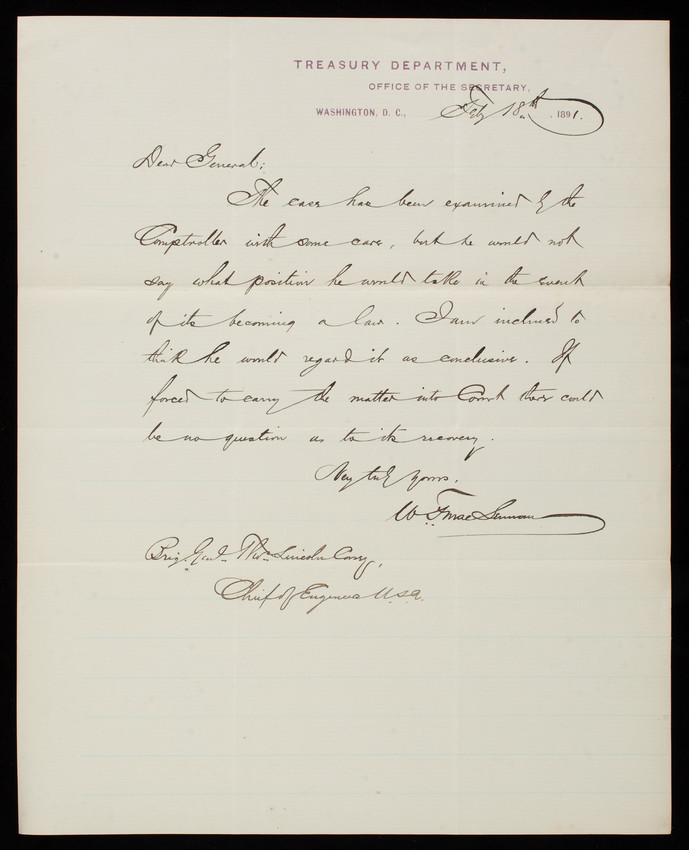 TREASURY DEPARTMENT,
OFFICE OF THE SECRETARY,
WASHINGTON, D. C., Feb 18th, 1891.
Dear General:
The case has been examined by the
Comptroller with some care, but he would not
say what position he would take in the event
of its becoming a law. I am inclined to
think he would regard it as conclusive. If
forced to carry the matter into Court there could
be no question as to its recovery.
Very truly yours,
W. F. MacLennan
Brig. Genl. Thos. Lincoln Casey,
Chief of Engineers U.S.A.